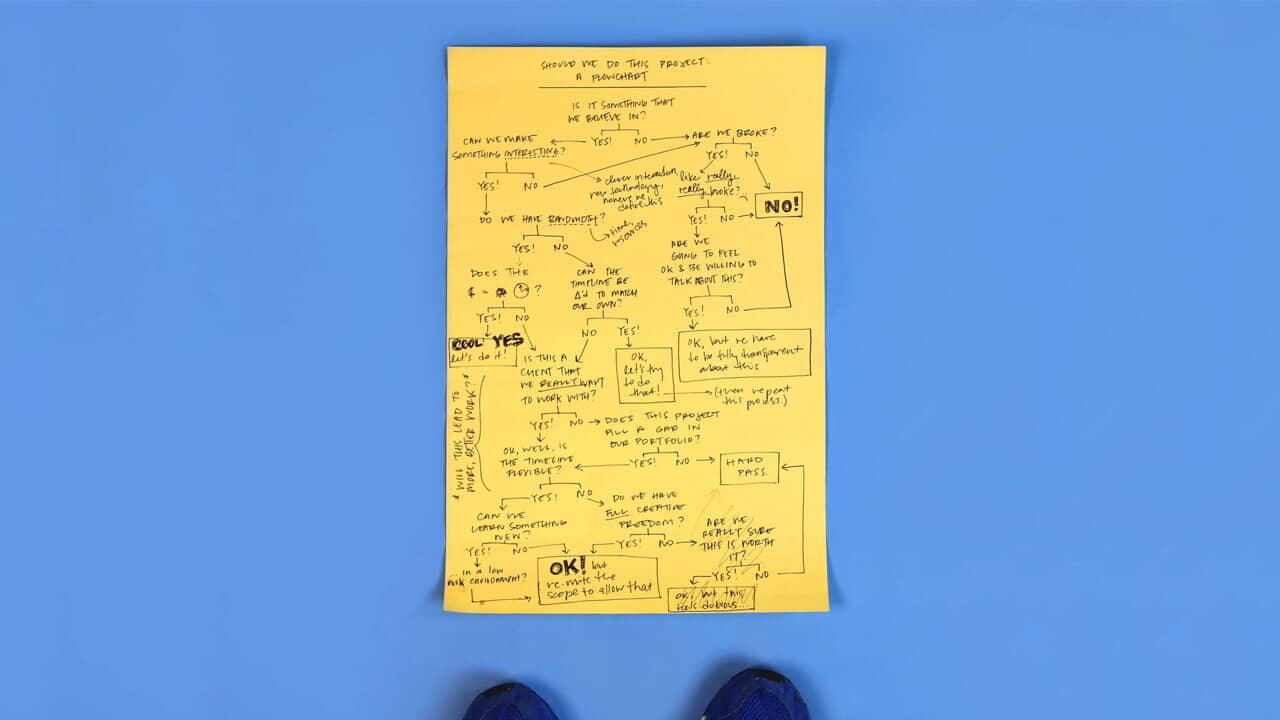 SHOULD WE DO THIS PROJECT:
A FLOWCHART
IS IT SOMETHING THAT
WE BELIEVE IN?
YES! NO
CAN WE MAKE
SOMETHING INTERESTING?
YES! NO
clever interaction,
new technology,
DO WE HAVE BANDWIDTH?
time,
resources
YES! NO
DOES THE
$ = ?
YES! NO
COOL! YES
let's do it!
CAN THE
TIMELINE BE
Δ'd TO MATCH
OUR OWN?
NO YES!
OK,
let's try
to do
that!
(then repeat
this process.)
ARE WE BROKE?
YES! NO
like really,
really broke?
YES! NO
NO!
ARE WE
GOING TO FEEL
OK & BE WILLING TO
TALK ABOUT THIS?
YES! NO
OK, but we have
to be fully transparent
about this
IS THIS A
CLIENT THAT
WE REALLY WANT
TO WORK WITH?
YES! NO
* WILL THIS LEAD TO
MORE, BETTER WORK? *
DOES THIS PROJECT
FILL A GAP IN
OUR PORTFOLIO?
YES! NO
HARD
PASS.
OK, WELL, IS
THE TIMELINE
FLEXIBLE?
YES! NO
CAN WE
LEARN SOMETHING
NEW?
YES! NO
...in a low
risk environment?
DO WE HAVE
FULL CREATIVE
FREEDOM?
YES! NO
OK! but
re-write the
scope to allow that
ARE WE
REALLY SURE
THIS IS WORTH
IT?
YES! NO
OK, but this
feels dubious...